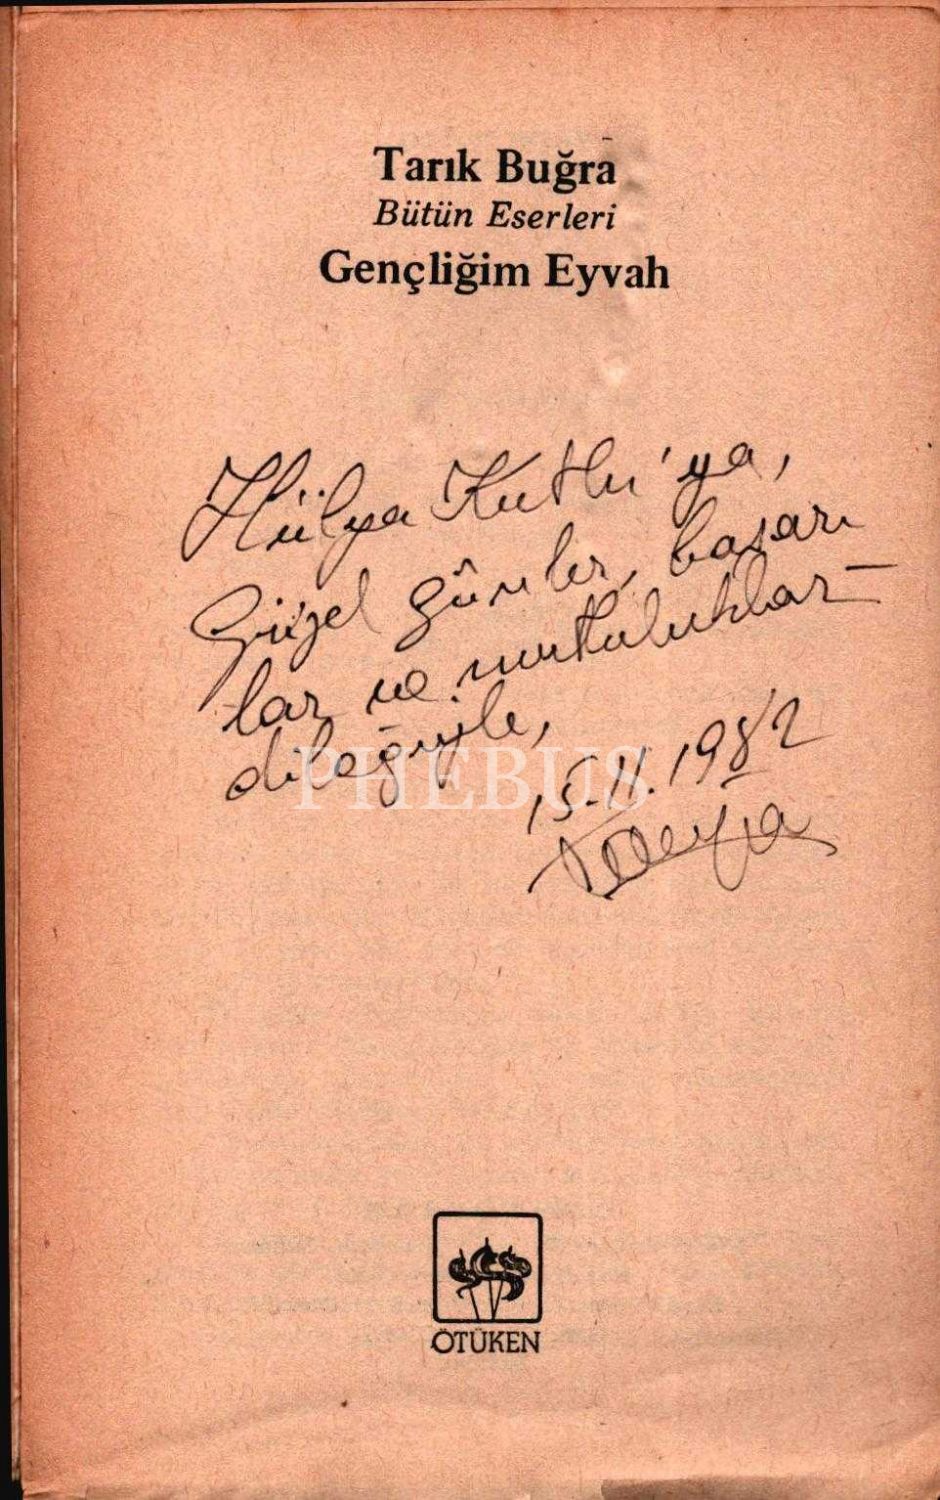 Tarık Buğra
Bütün Eserleri
Gençliğim Eyvah
Hülya Kutlu'ya,
Güzel günler, başarı
lar ve mutluluklar
dileğiyle,
PHEBUS
15.11.1982
ÖTÜKEN